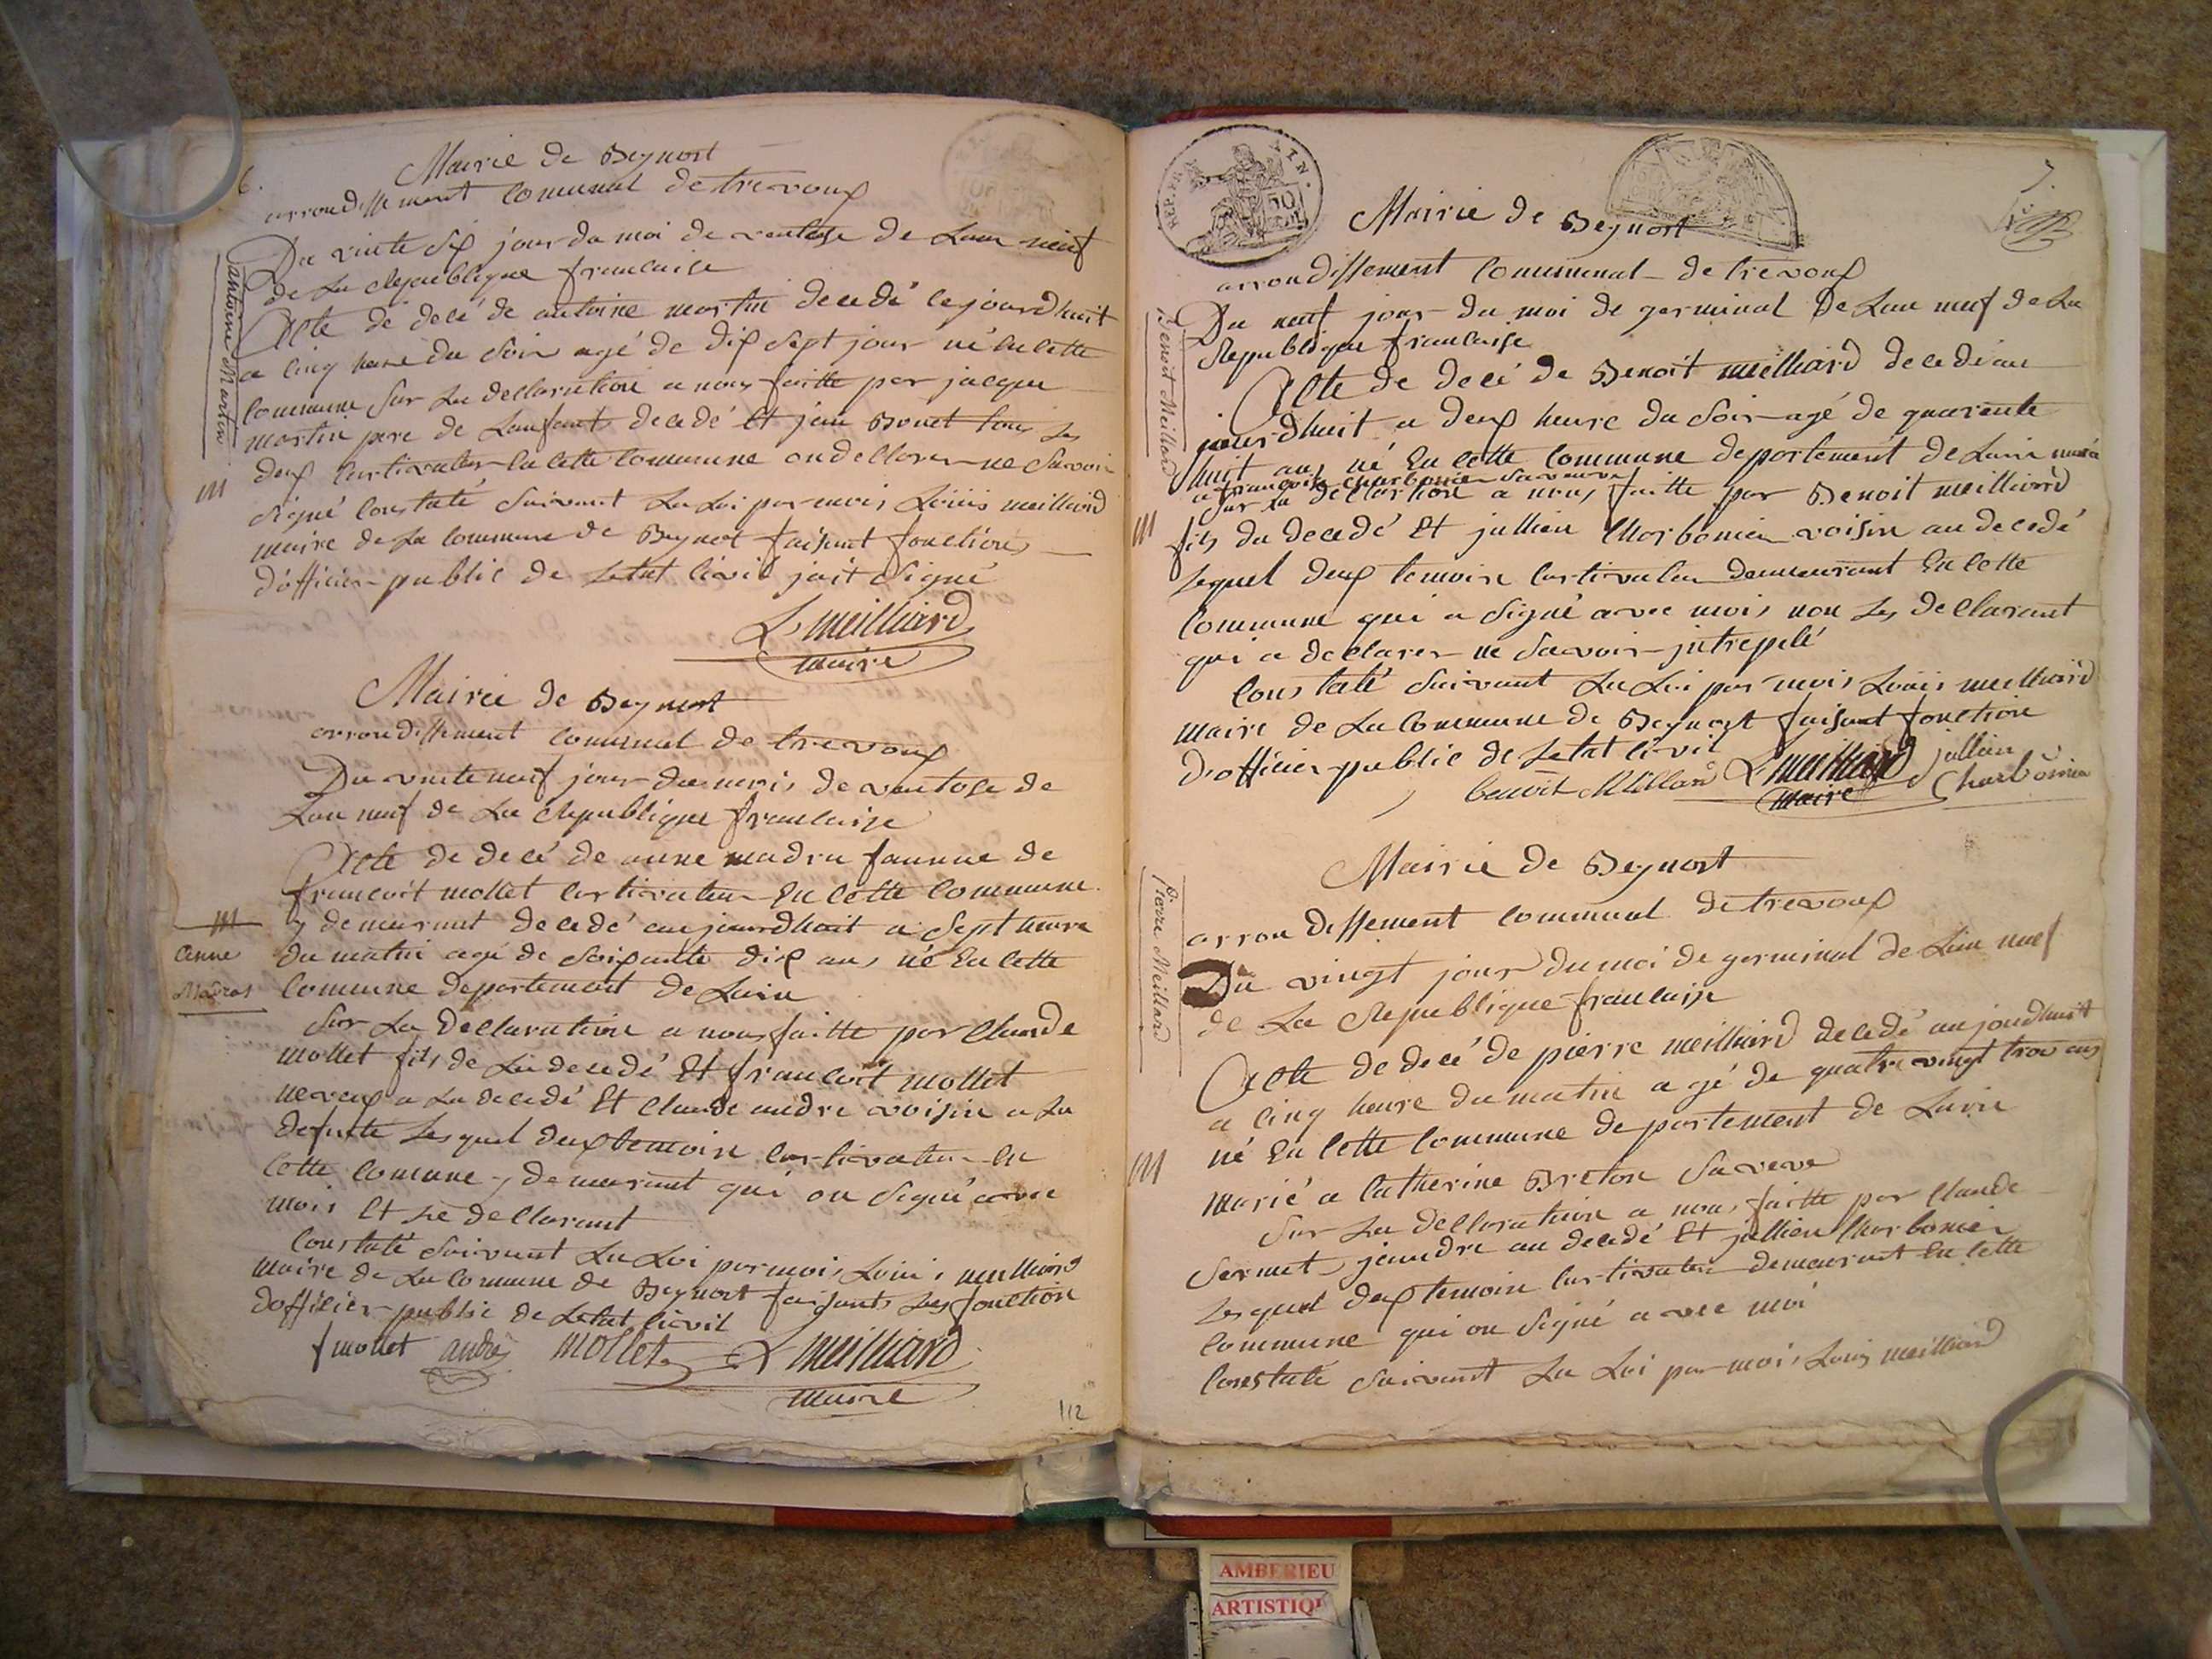 6.
Mairie de Beynost
arrondissement comunal de trevoux
Du vinte six jour du moi de ventose de Lan neuf
de La Republique francaise
Acte de decé de antoine martin decedé cejourdhuit
a cinq heure du soir agé de dix sept jour né en cette
commune sur La decllaration a nous faitte par jacque
martin pere de Lenfant decedé Et jean Bonet tous Les
deux cultivateur En cette commune on decllarer ne savoir
signé constaté suivant La Loi par moi Louis meilliard
maire de La commune de Beynost faisant fonction
d'officier public de Letat civil jait signé
L meilliard
maire
antoine Martin
Mairie de Beynost
arrondissement comunal de trevoux
Du vinte neuf jour du moi de ventose de
Lan neuf de La Republique francaise
Acte de decé de anne madra famme de
francoit mollet cultivateur En cette commune
y demurant decedé aujourdhuit a sept heure
du matin agé de soixante dix ans né En cette
Commune departement de Lain
Sur La decllaration a nous faitte par Claude
mollet fils de La decedé Et francoit mollet
neveux a La decedé Et Claude andre voisin a La
defunte Lesquel deux temoin cultivateur En
cette comune y demeurant qui on signé avec
moi Et Le decllarant
Constaté suivant La Loi par moi Louis meilliard
maire de La Comune de Beynost faisant Les fonction
d'officier public de Letat civil
f mollet andré Mollet L meilliard
maire
anne
Madras
112
50
7.
Mairie de Beynost
arrondissement communal de trevoux
Du neuf jour du moi de germinal de Lan neuf de La
Republique francaise
Acte de decé de Benoit meilliard decedé au
jourdhuit a deux heure du soir agé de quarente
huit ans né En cette commune departement de Lain marié
a francoise charbonier sa veuve
Sur La decllartion a nous faitte par Benoit meilliard
fils du decedé Et jullien Charbonier voisin au decedé
Lequel deux temoin cultivateur demeurant En cette
Commune qui a signé avec moi non Les decllarant
qui a decllarer ne savoir intrepelé
Constaté suivant La Loi par moi Louis meilliard
maire de La Commune de Beynost faisant fonction
d'officier public de Letat civil
benoit Milliard L meilliard jullien
maire Charbonier
Benoit Meillard
Mairie de Beynost
arrondissement communal de trevoux
Du vingt jour du moi de germinal de Lan neuf
de La Republique francaise
Acte de decé de pierre meilliard decedé aujoudhuit
a cinq heure du matin agé de quatre vingt troi ans
né En cette commune departement de Lain
marié a Catherine Breton sa veve
Sur La decllaration a nous faitte par Claude
Sermet jeandre au decedé Et jullien Charbonier
Lesquel deux temoin cultivateur demeurant En cette
commune qui on signé avec moi
Constaté suivant La Loi par moi Louis meilliard
Pierre Meillard
AMBERIEU
ARTISTIQ